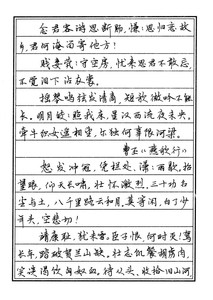 念君客游思断肠,慊慊思归恋故
乡,君何淹留寄他方!
贱妾茕茕守空房,忧来思君不敢忘,
不觉泪下沾衣裳。
援琴鸣弦发清商,短歌微吟不能
长。明月皎皎照我床,星汉西流夜未央。
牵牛织女遥相望,尔独何辜限河梁。
曹丕《燕歌行》
怒发冲冠,凭栏处、潇潇雨歇。抬
望眼,仰天长啸,壮怀激烈。三十功名
尘与土,八千里路云和月。莫等闲,白了少
年头,空悲切!
靖康耻,犹未雪。臣子恨,何时灭!驾
长车,踏破贺兰山缺。壮志饥餐胡虏肉,
笑谈渴饮匈奴血。待从头、收拾旧山河